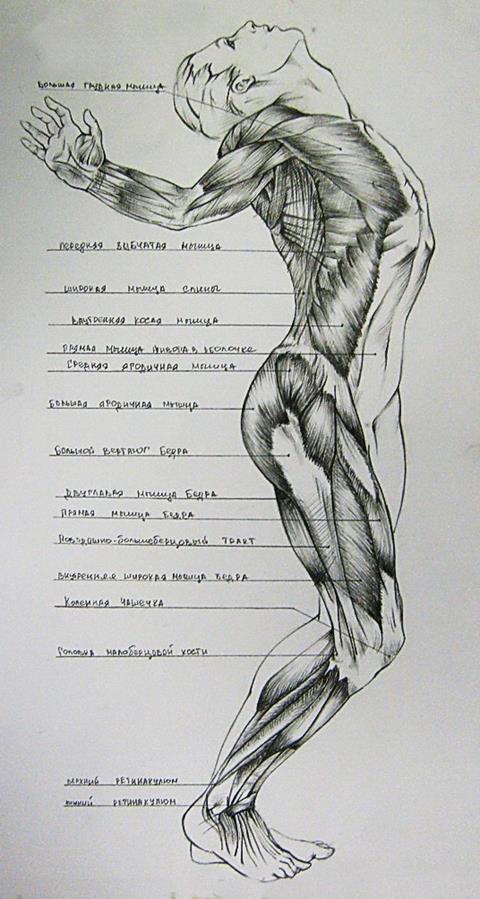 Большая грудная мышца
Передняя зубчатая мышца
Широкая мышца спины
Внутренняя косая мышца
Прямая мышца живота в оболочке
Средняя ягодичная мышца
Большая ягодичная мышца
Большой вертлюг бедра
Двуглавая мышца бедра
Прямая мышца бедра
Повздошно-большеберцовый тракт
Внутренняя широкая мышца бедра
Коленная чашечка
Головка малоберцовой кости
Верхний ретинакулюм
Нижний ретинакулюм